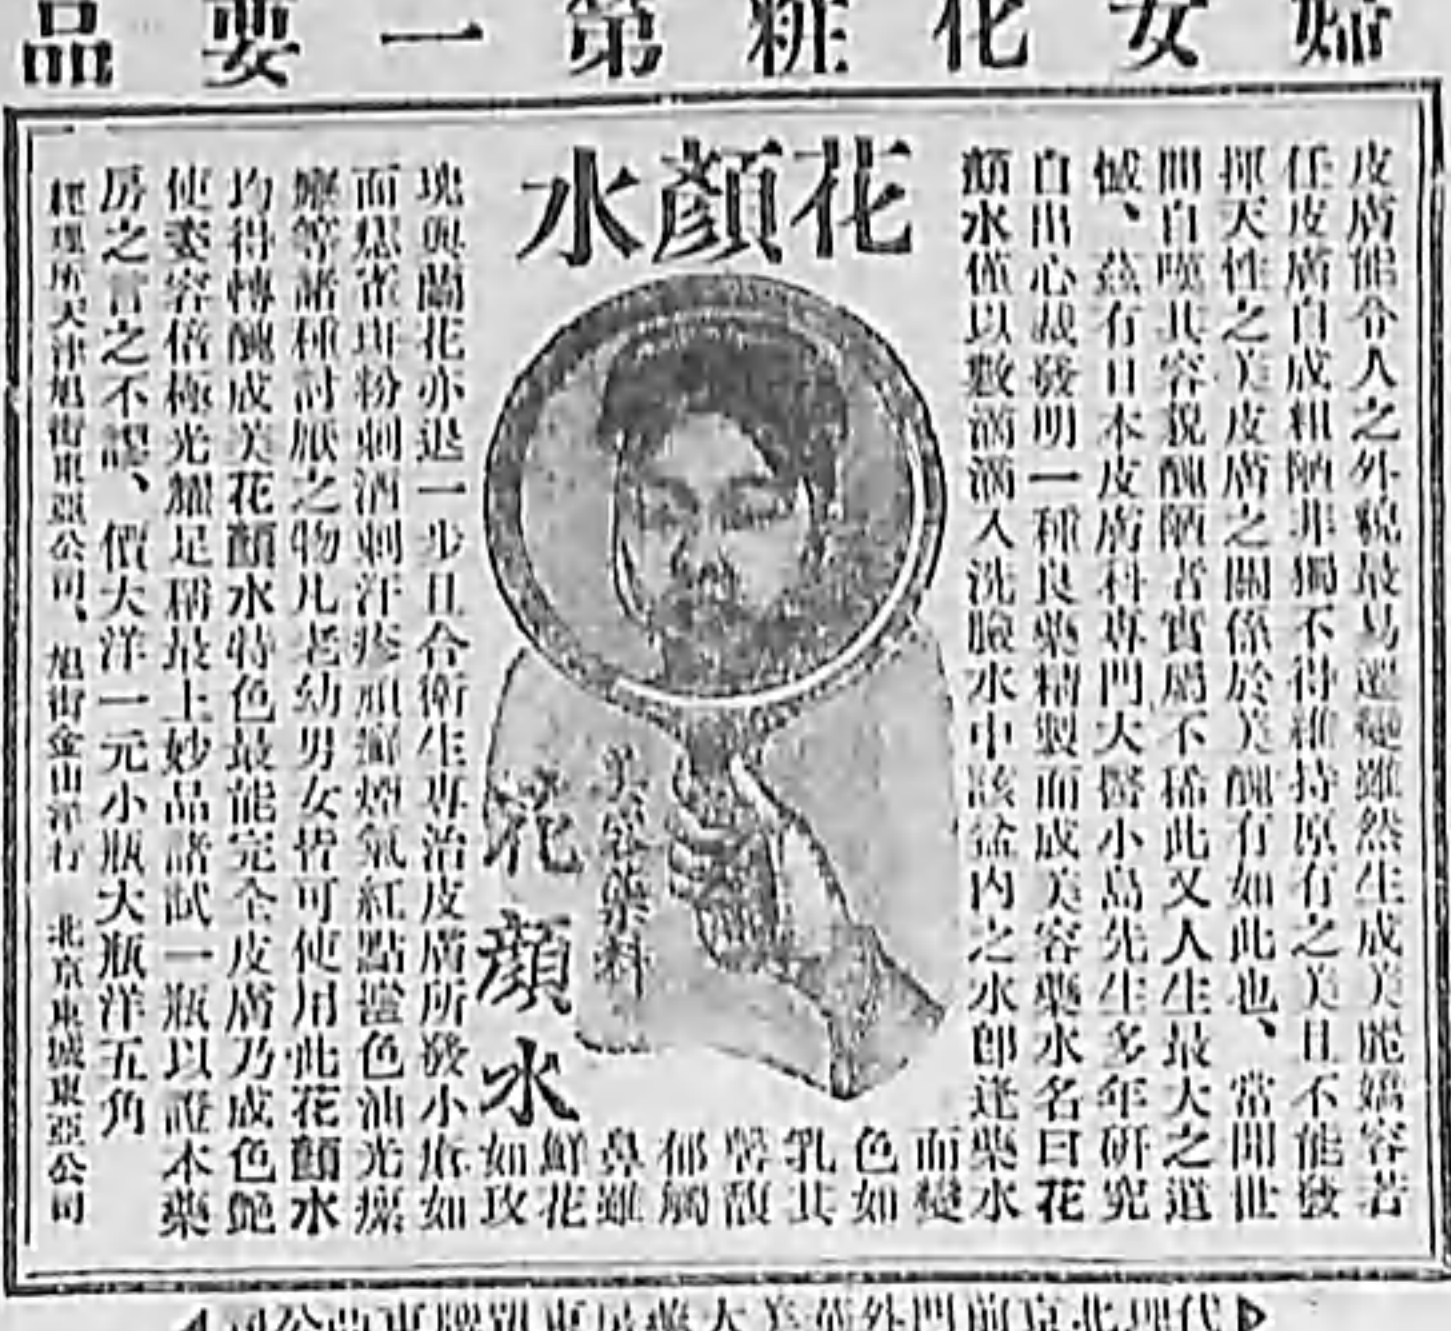 婦女化粧第一要品
花顏水
皮膚能令人之外貌最易遷變雖然生成美麗嬌容若
任皮膚自成粗陋非獨不得維持原有之美且不能發
揮天性之美皮膚之關係於美醜有如此也、常聞世
間自嘆其容貌醜陋者實屬不稀此又人生最大之道
憾、茲有日本皮膚科專門大醫小島先生多年研究
自出心裁發明一種良藥精製而成美容藥水名曰花
顏水僅以數滴滴入洗臉水中該盆內之水即逢藥水
而變
色如
乳其
馨馥
郁屬
鼻雖
鮮花
如玫
美容藥料
花顏水
瑰與蘭花亦退一步且合衛生專治皮膚所發小疵如
面雀斑粉刺酒刺汗疹頑癬煙氣紅點色油光瘰
癧等諸種討厭之物凡老幼男女皆可使用此花顏水
均得轉醜成美花顏水特色最能完全皮膚乃成色艶
使姿容倍極光耀足稱最上妙品請試一瓶以證本藥
房之言之不謬、價大洋一元小瓶大瓶洋五角
經理所天津旭街東亞公司、旭街金山洋行 北京東城東亞公司
代理北京前門外大藥房東單牌東亞公司